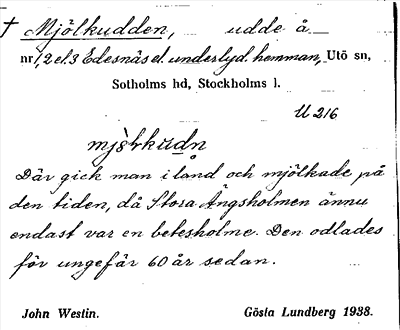 † Mjölkudden, udde å
nr 1, 2 el. 3 Edesnäs el. underlyd. hemman, Utö sn,
Sotholms hd, Stockholms l.
U 216
mjö̀lkùdn
Där gick man i land och mjölkade på
den tiden, då Stora Ängsholmen ännu
endast var en betesholme. Den odlades
för ungefär 60 år sedan.
John Westin. Gösta Lundberg 1938.